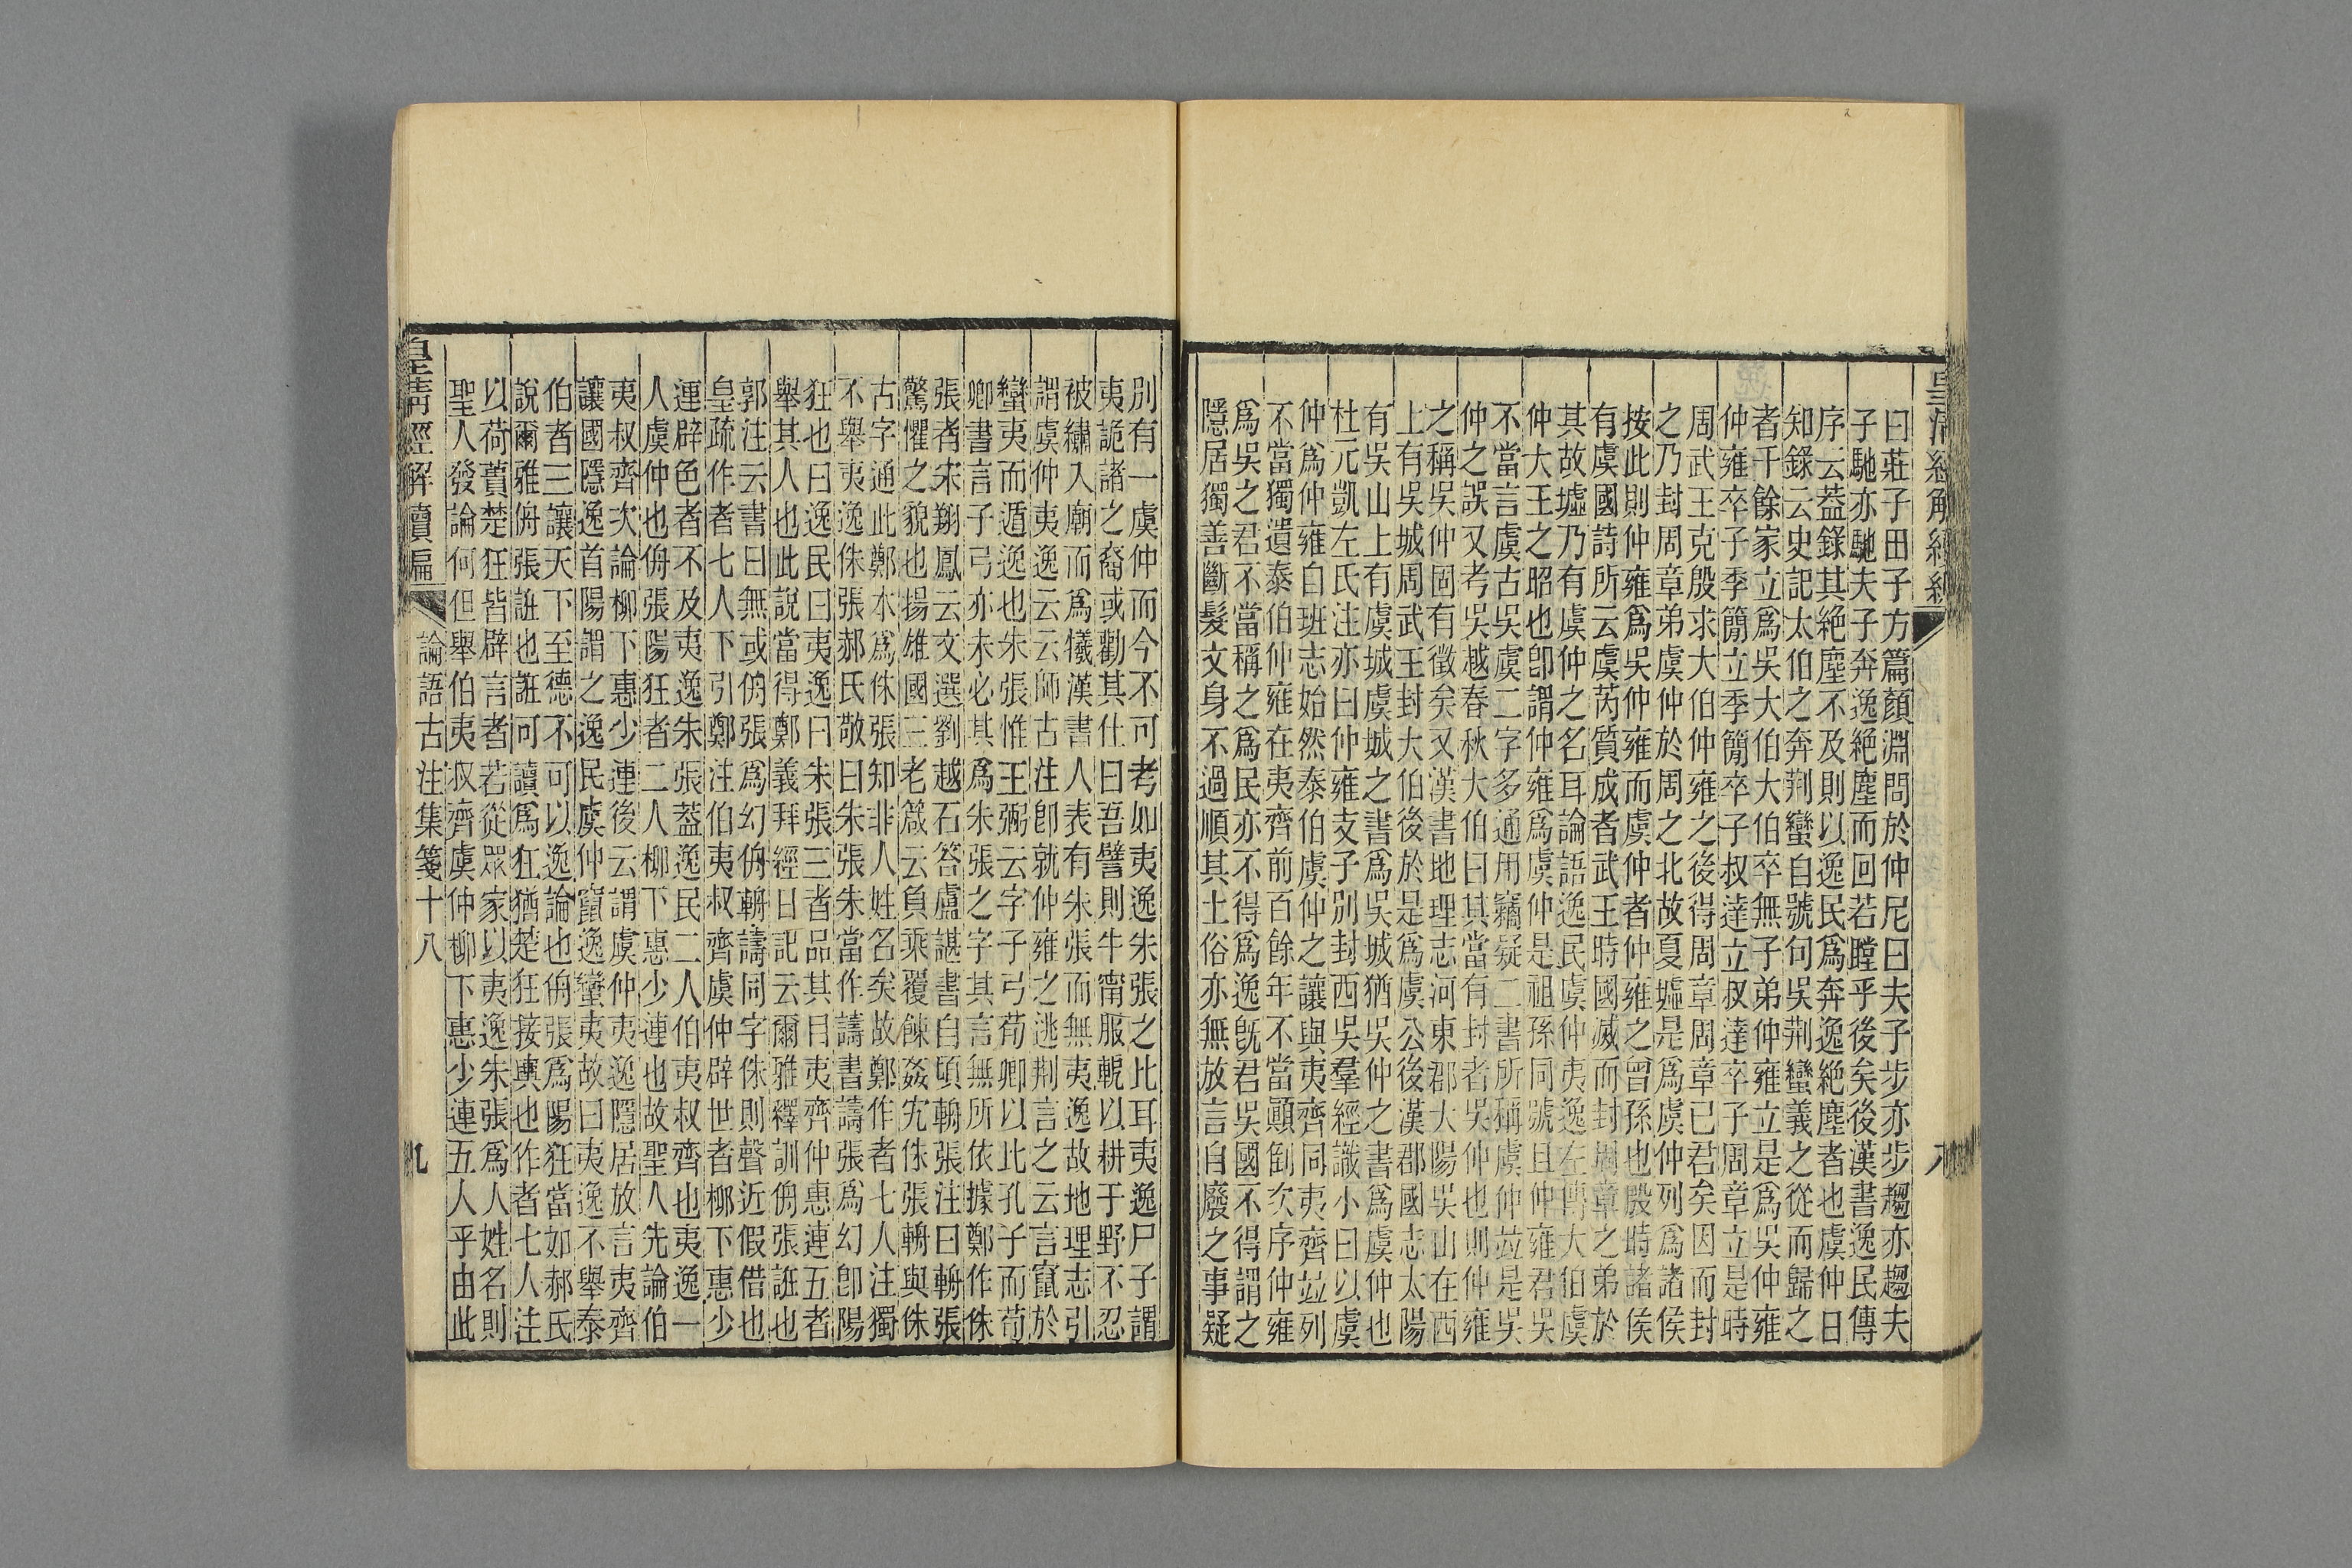 曰莊子田子方篇顏淵問於仲尼曰夫子步亦步趨亦趨夫
子馳亦馳夫子奔逸絕塵而回若瞠乎後矣後漢書逸民傳
序云蓋錄其絕塵不及則以逸民爲奔逸絕塵者也虞仲日
知錄云史記太伯之奔荆蠻自號句吳荆蠻義之從而歸之
者千餘家立爲吳大伯大伯卒無子弟仲雍立是爲吳仲雍
仲雍卒子季簡立季簡卒子叔達立叔達卒子周章立是時
周武王克殷求大伯仲雍之後得周章周章已君矣因而封
之乃封周章弟虞仲於周之北故夏墟是爲虞仲列爲諸侯
按此則仲雍爲吳仲雍而虞仲者仲雍之曾孫也殷時諸侯
有虞國詩所云虞芮質成者武王時國滅而封周章之弟於
其故墟乃有虞仲之名耳論語逸民虞仲夷逸左傳大伯虞
仲大王之昭也卽謂仲雍爲虞仲是祖孫同號且仲雍君吳
不當言虞古吳虞二字多通用竊疑二書所稱虞仲竝是吳
仲之誤又考吳越春秋大伯曰其當有封者吳仲也則仲雍
之稱吳仲固有徵矣又漢書地理志河東郡大陽吳山在西
上有吳城周武王封大伯後於是爲虞公後漢郡國志太陽
有吳山上有虞城虞城之書爲吳城猶吳仲之書爲虞仲也
杜元凱左氏注亦曰仲雍支子別封西吳羣經識小曰以虞
仲爲仲雍白班志始然泰伯虞仲之讓與夷齊同夷齊竝列
不當獨遺泰伯仲雍在夷齊前百餘年不當顚倒次序仲雍
爲吳之君不當稱之爲民亦不得爲逸旣君吳國不得謂之
隱居獨善斷髮文身不過順其土俗亦無放言自廢之事疑
別有一虞仲而今不可考如夷逸朱張之比耳夷逸尸子謂
夷詭諸之裔或勸其仕曰吾譬則牛甯服軛以耕于野不忍
被繡入廟而爲犧漢書人表有朱張而無夷逸故地理志引
謂虞仲夷逸云云師古注卽就仲雍之逃荆言之云言竄於
蠻夷而遁逸也朱張惟王弼云字子弓荀卿以此孔子而荀
卿書言子弓亦未必其爲朱張之字其言無所依據鄭作侏
張者宋翔鳳云文選劉越石答盧諶書自頃輈張注曰輈張
驚懼之貌也揚雄國三老箴云負乘覆餗姦宄侏張輈與侏
古字通此鄭本爲侏張知非人姓名矣故鄭作者七人注獨
不舉夷逸侏張郝氏敬曰朱張朱當作譸書譸張爲幻卽陽
狂也曰逸民曰夷逸曰朱張三者品其目夷齊仲惠連五者
舉其人也此說當得鄭義拜經日記云爾雅釋訓侜張誑也
郭注云書曰無或侜張爲幻侜輈譸同字侏則聲近假借也
皇疏作者七人下引鄭注伯夷叔齊虞仲辟世者柳下惠少
連辟色者不及夷逸朱張蓋逸民二人伯夷叔齊也夷逸一
人虞仲也侜張陽狂者二人柳下惠少連也故聖人先論伯
夷叔齊次論柳下惠少連後云謂虞仲夷逸隱居放言夷齊
讓國隱逸首陽謂之逸民虞仲竄逸蠻夷故曰夷逸不舉泰
伯者三讓天下至德不可以逸論也侜張爲陽狂當如郝氏
說爾雅侜張誑也誑可讀爲狂猶楚狂接輿也作者七人注
以荷蕢楚狂皆辟言者若從眾家以夷逸朱張爲人姓名則
聖人發論何但舉伯夷叔齊虞仲柳下惠少連五人乎由此
皇清經解續編
論語古注集箋十八
九